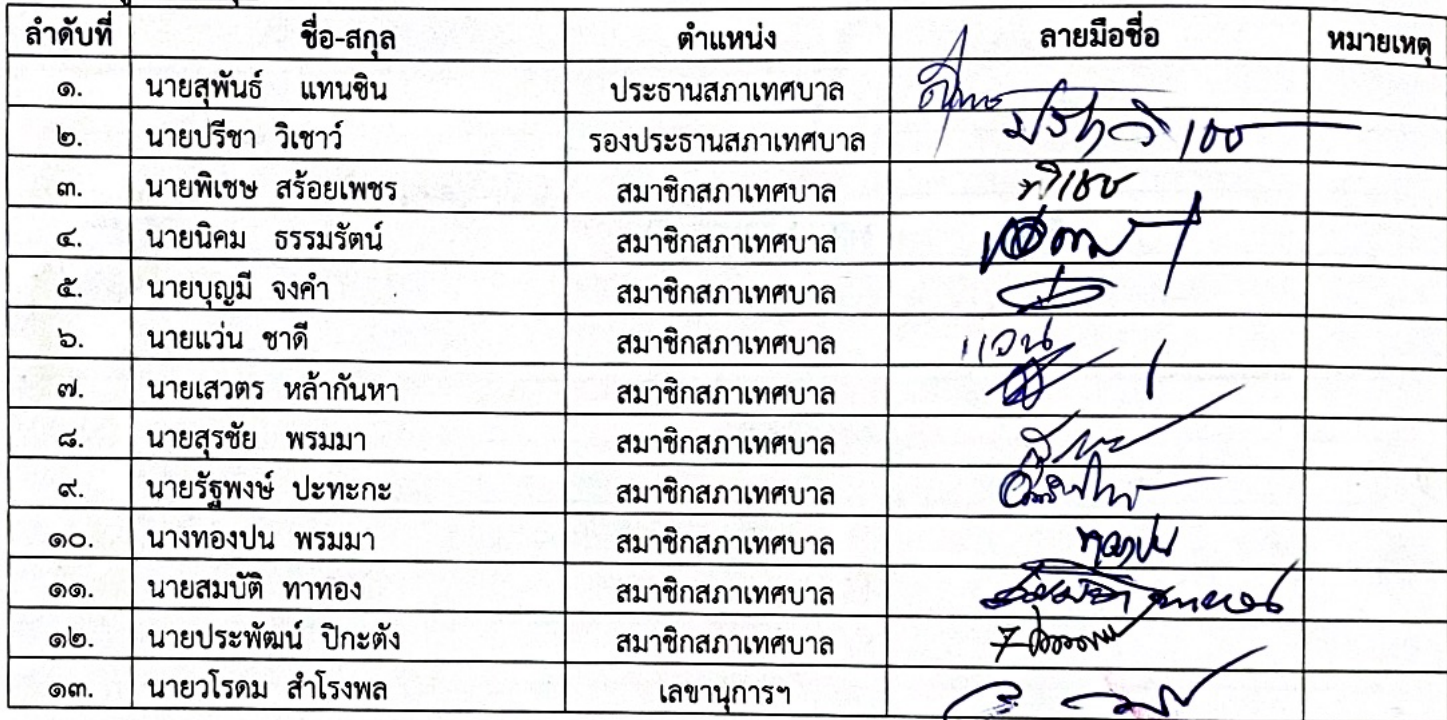 ลำดับที่ ชื่อ-สกุล ตำแหน่ง ลายมือชื่อ หมายเหตุ
๑. นายสุพันธ์ แทนชิน ประธานสภาเทศบาล
๒. นายปรีชา วิเชาว์ รองประธานสภาเทศบาล
๓. นายพิเชษ สร้อยเพชร สมาชิกสภาเทศบาล พิเชษ
๔. นายนิคม ธรรมรัตน์ สมาชิกสภาเทศบาล
๕. นายบุญมี จงคำ สมาชิกสภาเทศบาล
๖. นายแว่น ชาดี สมาชิกสภาเทศบาล แวน
๗. นายเสวตร หล้ากันหา สมาชิกสภาเทศบาล
๘. นายสุรชัย พรมมา สมาชิกสภาเทศบาล
๙. นายรัฐพงษ์ ปะทะกะ สมาชิกสภาเทศบาล
๑๐. นางทองปน พรมมา สมาชิกสภาเทศบาล ทองปน
๑๑. นายสมบัติ ทาทอง สมาชิกสภาเทศบาล
๑๒. นายประพัฒน์ ปิกะตัง สมาชิกสภาเทศบาล
๑๓. นายวโรดม สำโรงพล เลขานุการฯ